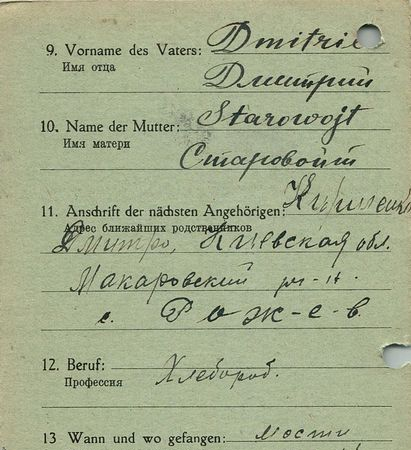 9. Vorname des Vaters: Dmitri
Имя отца Дмитрий
10. Name der Mutter: Starowojt
Имя матери Старовойт
11. Anschrift der nächsten Angehörigen:
Адрес ближайших родственников
Дмитро, Киевская обл.
Макаровский р-н
с. Рожев
12. Beruf: Хлебороб.
Профессия
13 Wann und wo gefangen: мости